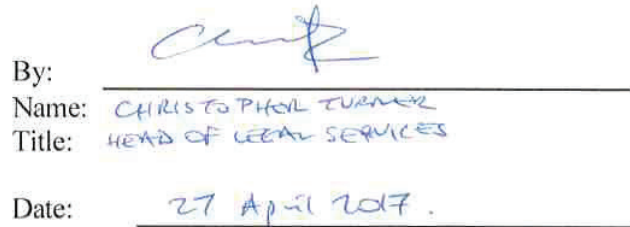 By:
Name: CHRISTOPHER TURNER
Title: HEAD OF LEGAL SERVICES
Date: 27 April 2017.